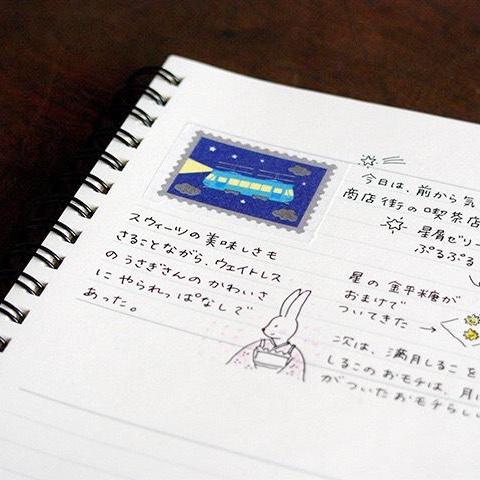 スウィーツの美味しさも
さることながら、ウェイトレス
のうさぎさんのかわいさ
にやられっぱなしで
あった。
今日は、前から気
商店街の喫茶店
星屑ゼリー
ぷるぷる
星の金平糖が
おまけで
ついてきた→
次は、満月しるこを
しるこのおモチは、月に
がついたおモチらしい